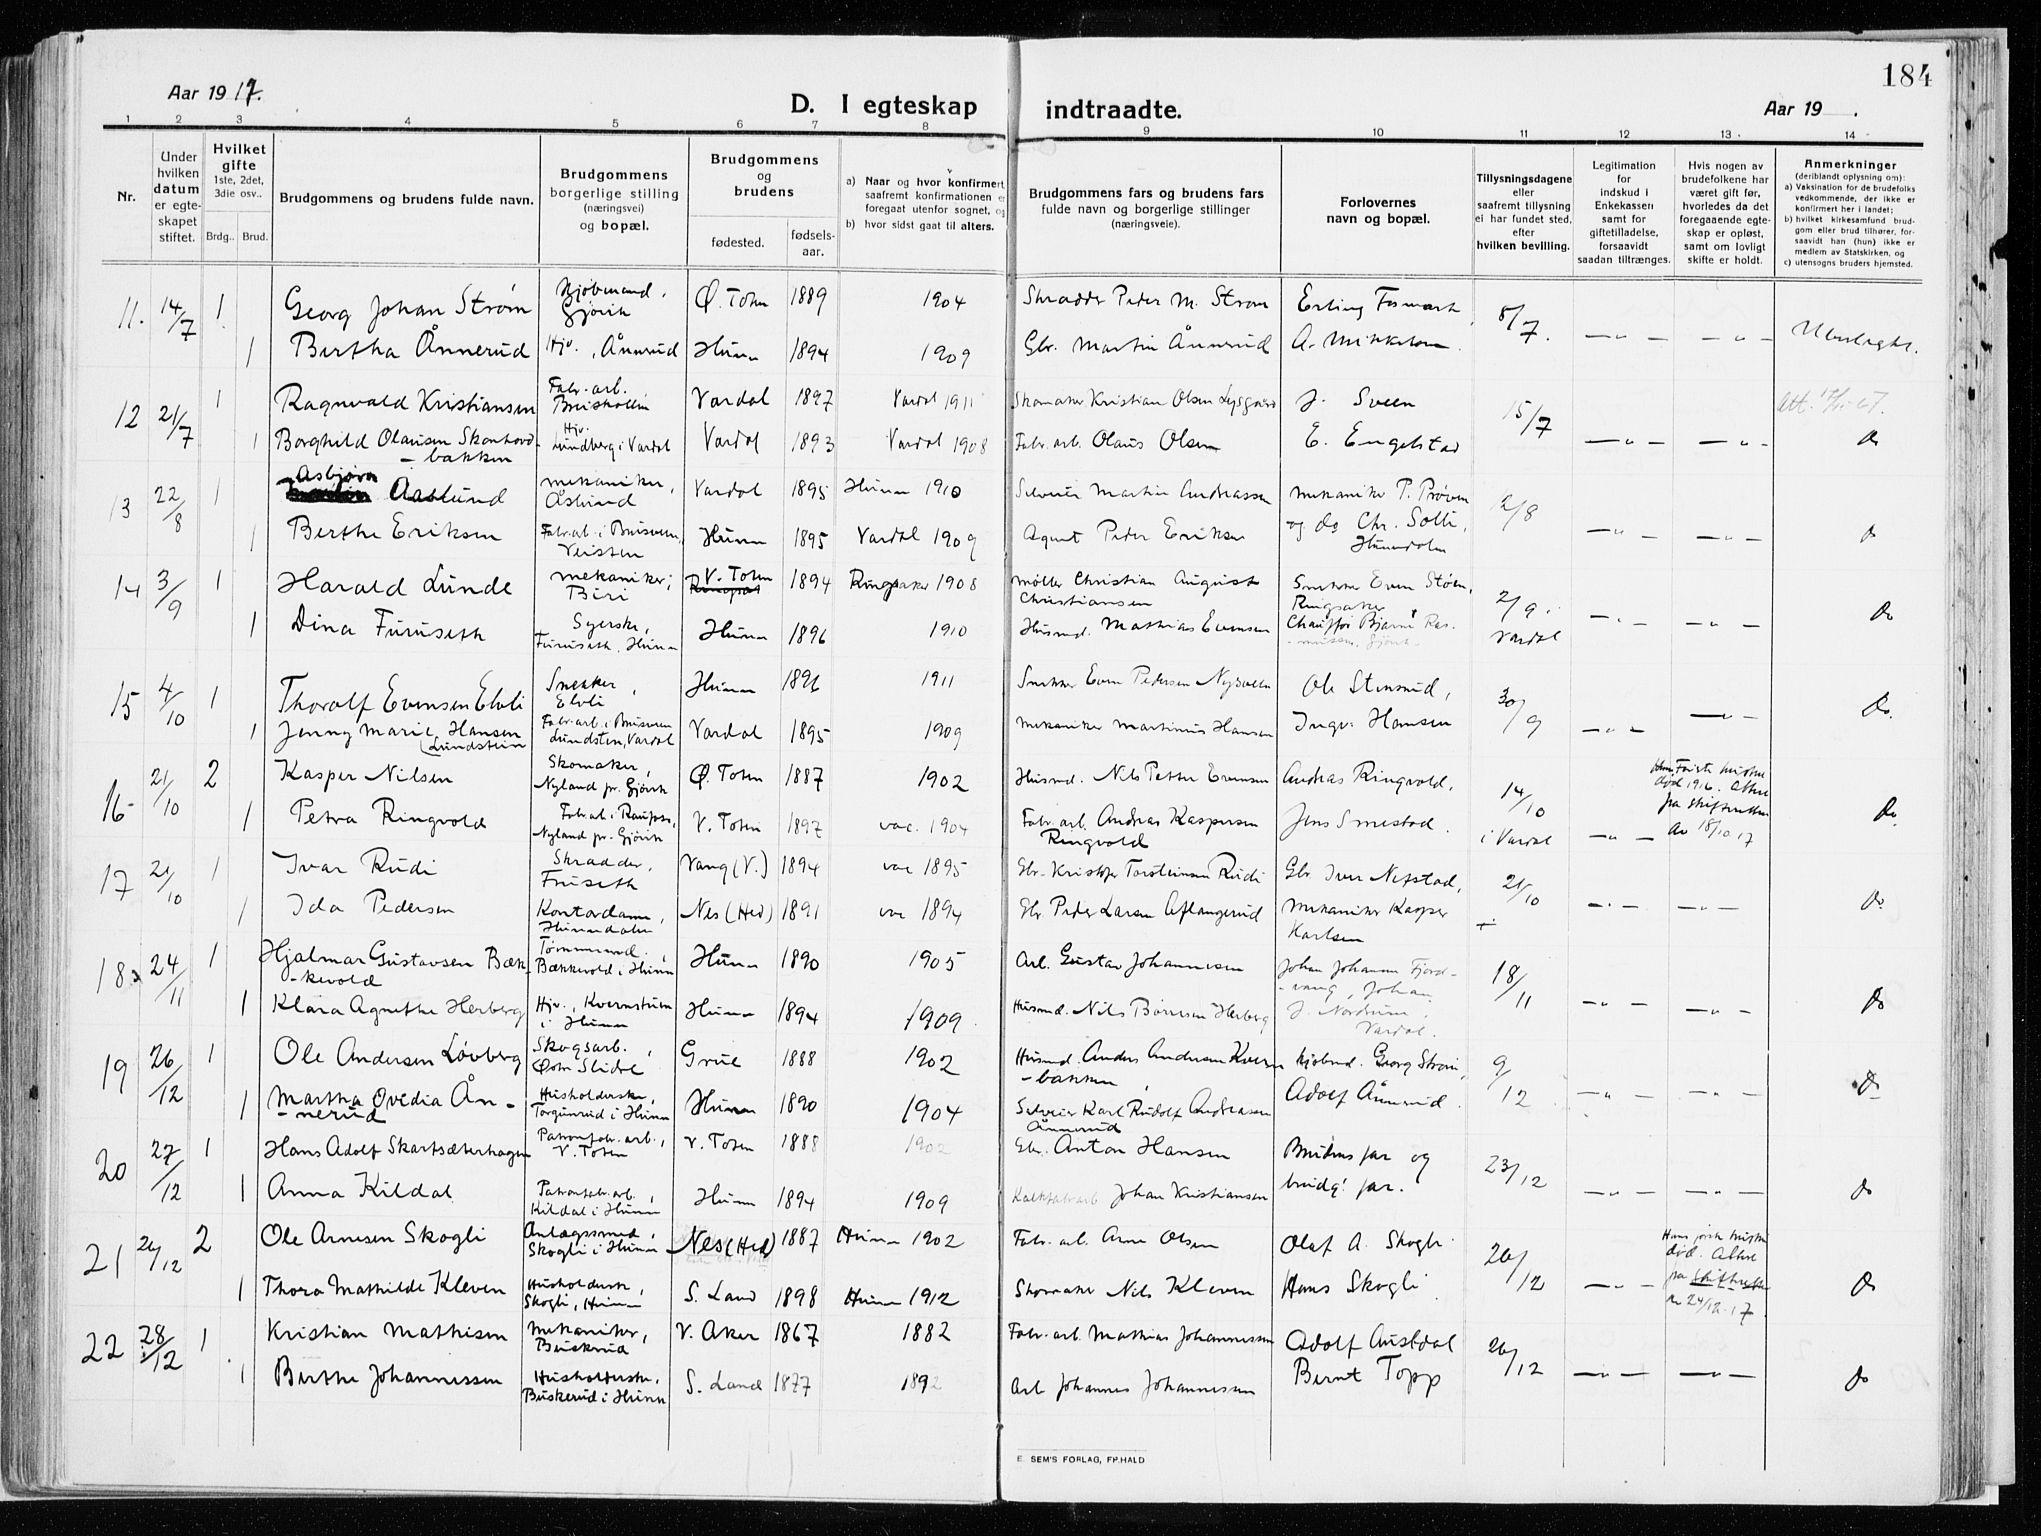 184
Aar 1917.
D. I egteskap indtraadte.
Aar 19 .
1 2 3 4 5 6 7 8 9 10 11 12 13 14
Nr.
Under hvilken datum er egteskapet stiftet.
Hvilket gifte
1ste, 2det, 3die osv..
Brdg.. Brud.
Brudgommens og brudens fulde navn.
Brudgommens borgerlige stilling (næringsvei) og bopæl.
Brudgommens og brudens
fødested. fødselsaar.
a) Naar og hvor konfirmert, saafremt konfirmationen er foregaat utenfor sognet, og
b) hvor sidst gaat til alters.
Brudgommens fars og brudens fars fulde navn og borgerlige stillinger (næringsveie).
Forlovernes navn og bopæl.
Tillysningsdagene eller saafremt tillysning ei har fundet sted, efter hvilken bevilling.
Legitimation for indskud i Enkekassen samt for giftetilladelse, forsaavidt saadan tiltrænges.
Hvis nogen av brudefolkene har været gift før, hvorledes da det foregaaende egteskap er opløst, samt om lovligt skifte er holdt.
Anmerkninger (deriblandt oplysning om):
a) Vaksination for de brudefolks vedkommende, der ikke er konfirmert her i landet;
b) hvilket kirkesamfund brudgom eller brud tilhører, forsaavidt han (hun) ikke er medlem av Statskirken, og
c) utensogns bruders hjemsted.
11. 14/7 1 Georg Johan Strøm Kjøbmand, Gjøvik Ø. Toten 1889 1904 Skrædder Peder M. Strøm Erling Fosmark, 8/7.
1 Bertha Ånnerud Hjv., Ånnerud Hunn 1894 1909 Gbr. Martin Ånnerud A. Mikkelsen — " — — " — Ubeslegtet.
12 21/7 1 Ragnvald Kristiansen Fabr. arb. Vardal 1897 Vardal 1911 Skomaker Kristian Olsen Lysgaard J. Sveen 15/7
1 Borghild Olausen Skonhovdbakken Hjv. Lundberg i Vardal Vardal 1893 Vardal 1908 Fabr. arb. Olaus Olsen E. Engelstad — " — — " — Do
13 22/8 1 Asbjørn Aaslund mekaniker, Åslund Vardal 1895 Hunn 1910 Martin Andreassen Mekaniker P. Prøven 2/8
1 Berthe Eriksen Fabr. arb. i Brusveen, Hunn 1895 Vardal 1909 Agent Peder Eriksen og do Chr. Solli, Hunndalen — " — — " — Do
14 3/9 1 Harald Lunde mekaniker, Biri V. Toten 1894 Ringsaker 1908 Møller Christian August Christiansen Snekker Even Støen, Ringsaker 2/9.
1 Dina Furuseth Syerske, Furuseth, Hunn Hunn 1896 1910 Husmd. Mathias Evensen Chauffør Bjarne Rasmussen, Gjøvik Vardal — " — — " — Do
15 4/10 1 Thorolf Evensen Elvli Snekker, Elvli Hunn 1896 1911 Snekker Even Pedersen Nysveen Ole Stensrud, 30/9
1 Jenny Marie Hansen (Lundstein Fabr. arb. i Brusveen Lundsten, Vardal Vardal 1895 1909 Mekaniker Martinus Hansen Ingv. Hansen — " — — " — Do.
16 21/10 2 Kasper Nilsen Skomaker, Nyland pr. Gjøvik Ø. Toten 1887 1902 Husmd. Nils Petter Evensen Andreas Ringvold, 14/10 Første hustru død 1916. Attest fra skifteretten av 18/10 17
1 Petra Ringvold Fabr. arb. i Raufoss, Nyland pr. Gjøvik V. Toten 1897 vac. 1904 Fabr. arb. Andreas Kaspersen Ringvold Jens Smestad. i Vardal — " — Do
17 21/10 1 Ivar Rudi Skrædder, Fruseth Vang (V.) 1894 vac 1895 Gbr. Kristofer Torsteinsen Rudi Gbr. Iver Nefstad, 21/10
1 Ida Pedersen Kontordame, Hunndalen Nes (Hed) 1891 vac 1894 Gbr Peder Larsen Aflangerud Mekaniker Kasper Karlsen — " — — " — Do
18 24/11 1 Hjalmar Gustavsen Bækkevold Tømmermand, Bækkevold i Hunn Hunn 1890 1905 Arb. Gustav Johannesen Johan Johansen Fjordvang, Johan 18/11
1 Klara Agnethe Herberg Hjv., Kvernstuen i Hunn Hunn 1894 1909. Husmd. Nils Børresen Herberg J. Nordrum, Vardal. — " — — " — Do
19 26/12 1 Ole Andersen Løvberg Skogsarb., Østre Slidre Grue 1888 1902 Husmd. Anders Andersen Kvernbakken Kjøbmd. Georg Strøm, 9/12
1 Martha Ovidia Ånnerud Husholderske, Torgunrud i Hunn Hunn 1890 1904 Karl Rudolf Andreasen Ånnerud Adolf Ånnerud. — " — — " — Do
20 27/12 1 Hans Adolf Skartsæterhagen Patronfabr. arb., V. Toten V. Toten 1888 1902 Gbr. Anton Hansen Brudens far og 23/12
1 Anna Kildal Patronfabr. arb., Kildal i Hunn Hunn 1894 1909 Johan Kristiansen brudg! far. — " — — " — Do
21 26/12 2 Ole Arnesen Skogli Anlægssmed, Skogli i Hunn Nes (Hed) 1887 Hunn 1902 Fabr. arb. Arne Olsen Olaf A. Skogli 26/12 Hans første hustru død. Attest fra skifteretten av 24/12.17
1 Thora Mathilde Kleven Husholdersk, Skogli, Hunn S. Land 1898 Hunn 1912 Skomaker Nils Kleven Hans Skogli — " — Do
22 28/12 1 Kristian Mathisen Mekaniker, Buskerud V. Aker 1867 1882 Fabr. arb. Mathias Johannessen Adolf Austdal 26/12
1 Berthe Johannessen Husholderske, Buskerud i Hunn S. Land 1877 1892 Arb Johannes Johannessen Bernt Topp — " — — " — Do
E. SEM'S FORLAG, FR.HALD